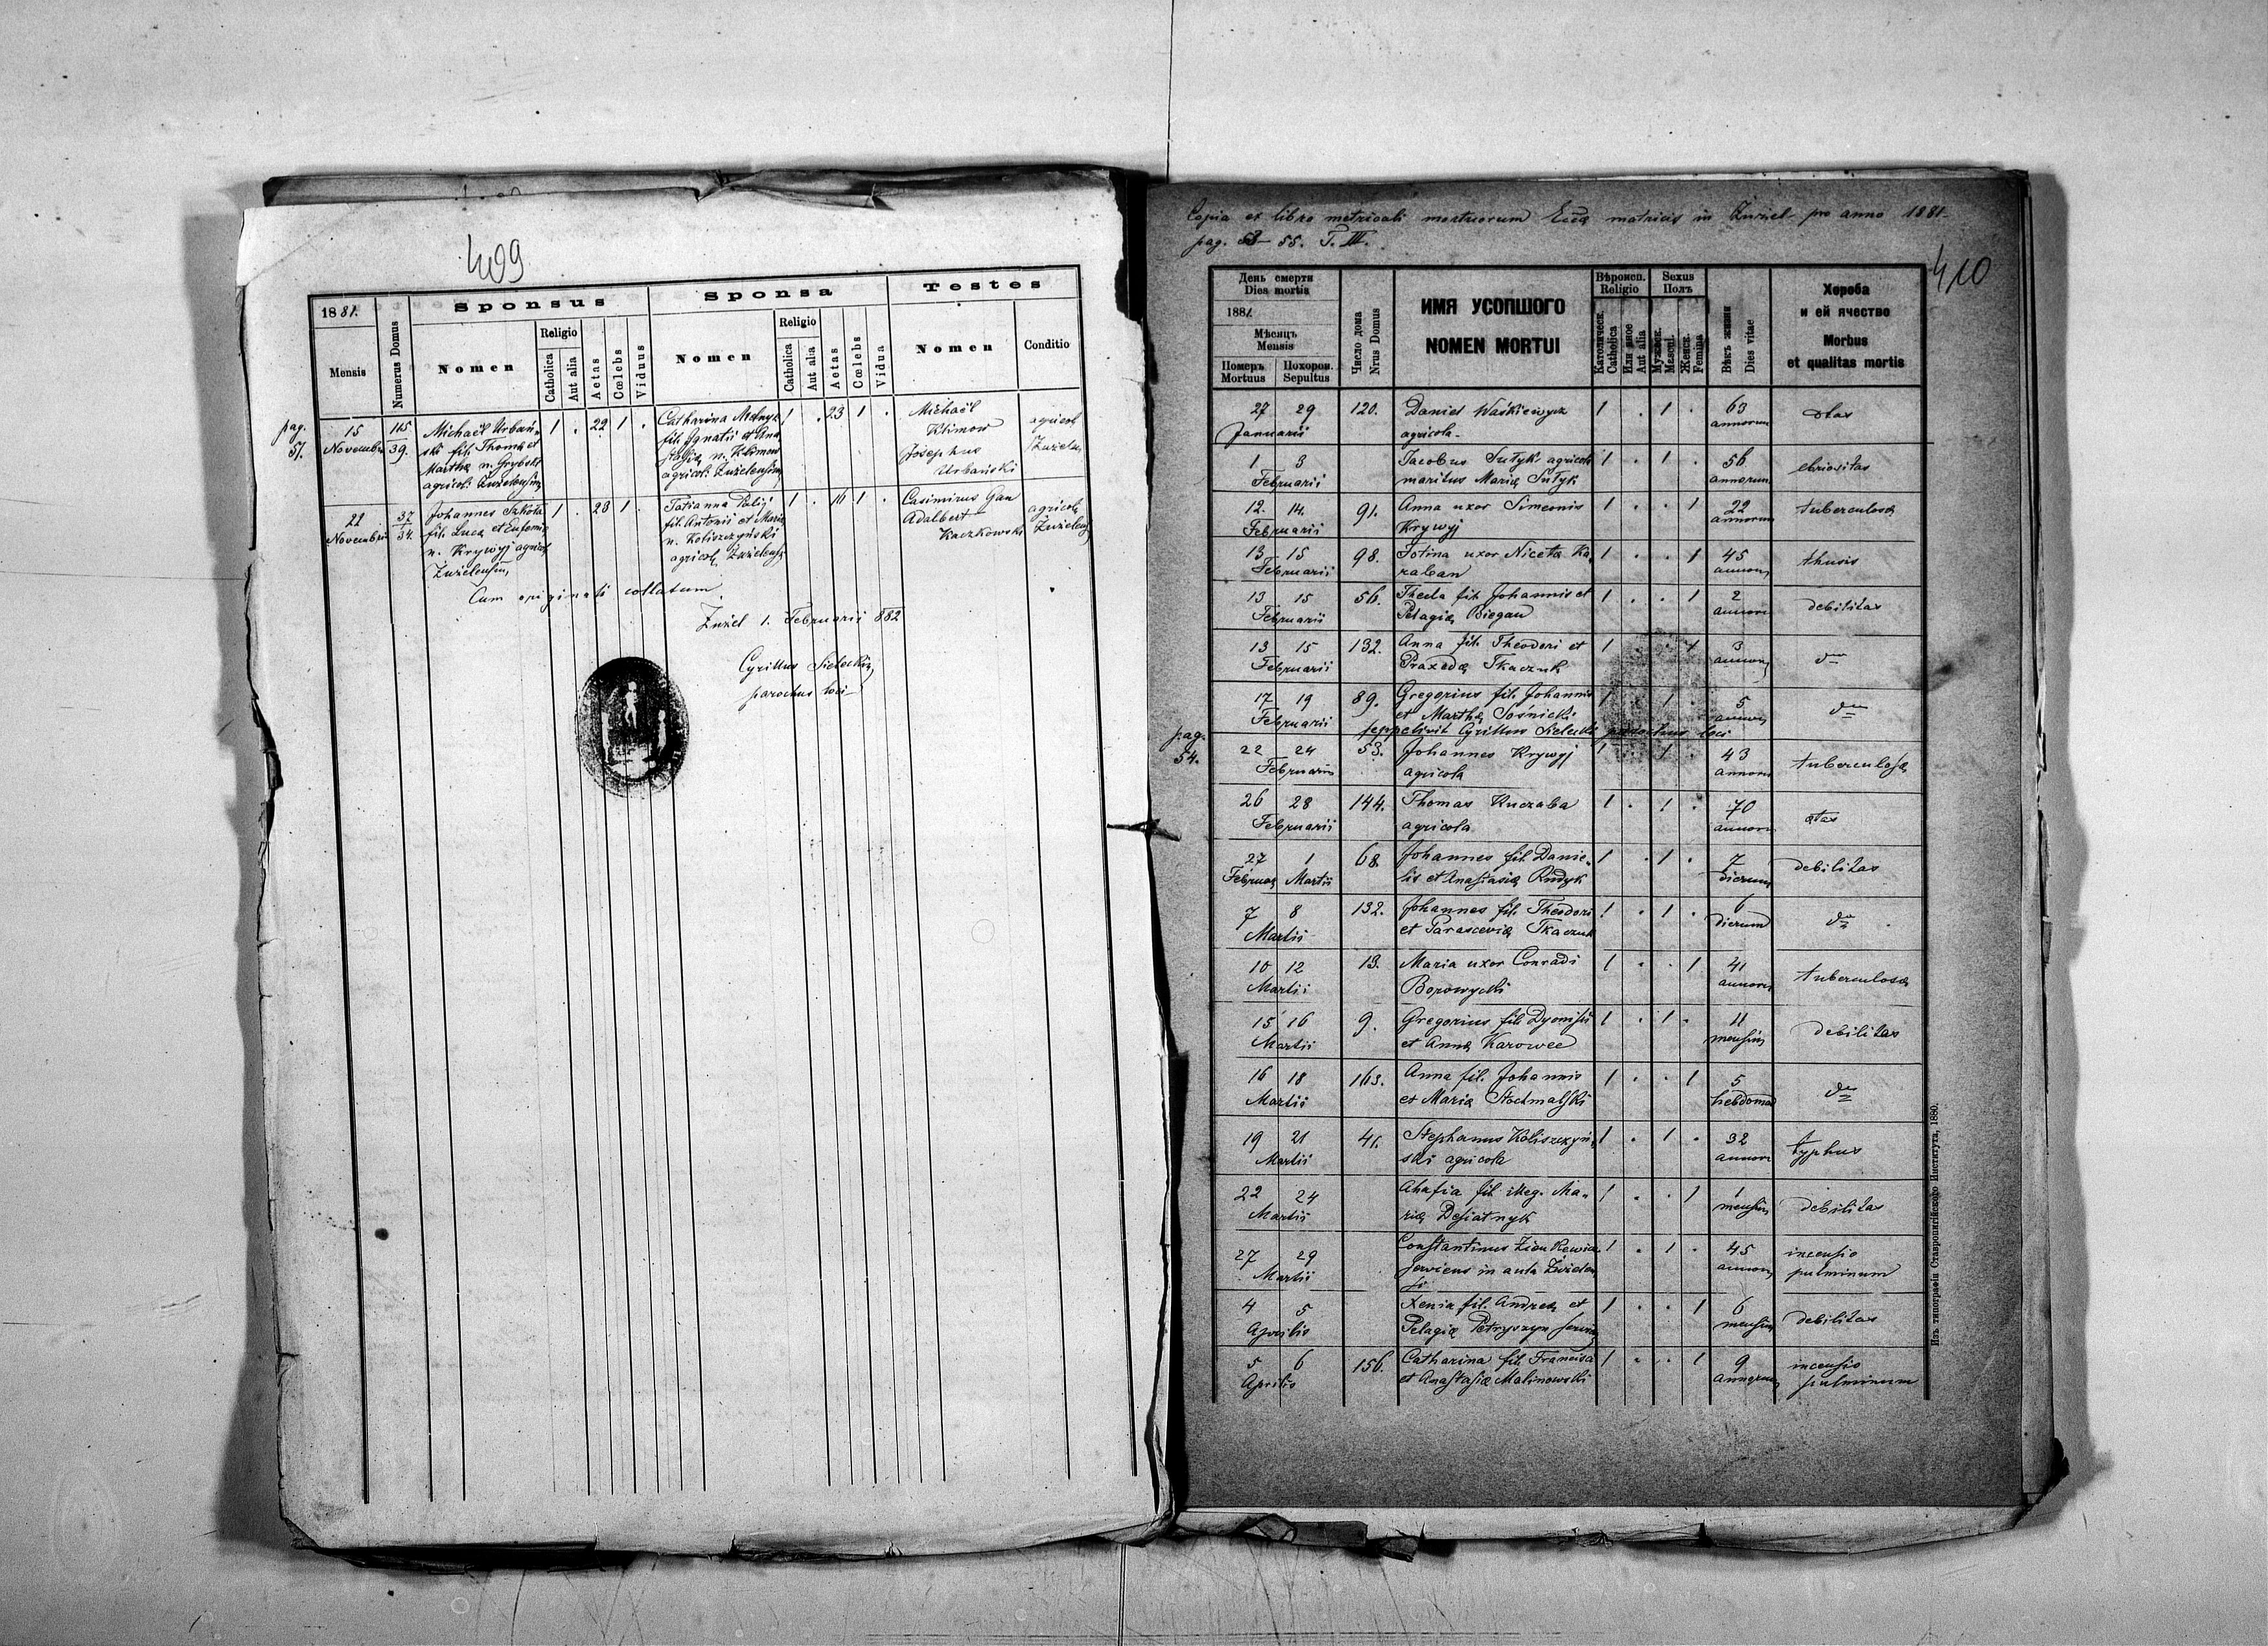 409
1881.
Mensis
Numerus Domus
Sponsus
Nomen
Religio
Catholica
Aut alia
Aetas
Cœlebs
Viduus
Sponsa
Nomen
Religio
Catholica
Aut alia
Aetas
Cœlebs
Vidua
Testes
Nomen
Conditio
pag. 51.
15 Novembris
115
39.
Michaël Urbań-
ski fil. Thomæ et
Marthæ n. Grybski
agricol.
1 . 22 1 .
Catharina Melnyk
fil. Ignatii et Ana
stasiæ n. Klimow
agricol.
1 . 23 1 .
Michaël
Klimow
Josephus
Urbański
agricol.
22 Novembris
37
34.
Johannes Szkoła
fil. Lucæ et Eufemiæ
n. Krywyj agricol.
1 . 23 1 .
Tatianna Palij
fil. Antonii et Mariæ
n. Koliszczyński
agricol.
1 . 16 1 .
Casimirus Gan
Adalbert
Kaczkowski
agricolæ
Cum originali collatum.
Żużel 1. Februarii 882
Cyrillus Sielecki
parochus loci
Copia ex libro metricali mortuorum Eccæ matricis in Żużel pro anno 1881
pag. 53–55. T. III.
410
День смерти
Dies mortis
1881.
Мѣсяцъ
Mensis
Померъ
Mortuus
Похорон.
Sepultus
Число дома
Nrus Domus
ИМЯ УСОПШОГО
NOMEN MORTUI
Вѣроисп.
Religio
Католическ.
Catholica
Или иное
Aut alia
Sexus
Полъ
Мужеск.
Mascul.
Женск.
Femina
Вѣкъ жизни
Dies vitae
Хороба
и ей ячество
Morbus
et qualitas mortis
27 29 120. Daniel Waśkiewycz 1 . 1 . 63
Januarii agricola annorum
1 3 Jacobus Sułyk agricola 1 . 1 . 56 ebriositas
Februarii maritus Mariæ Sułyk annorum
12. 14. 91. Anna uxor Simeonis 1 . . 1 22 tuberculosa
Februarii Krywyj annorum
13 15 98. Fotina uxor Nicetæ Ka 1 . . 1 45
Februarii raban annor.
13 15 56. Thecla fil. Johannis et 1 . . 1 2 debilitas
Februarii Pelagiæ Biegan annor.
13 15 132. Anna fil. Theodori et 1 . . 1 3 dto
Februarii Praxedæ Tkaczuk annor.
17 19 89. Gregorius fil. Johannis 1 . 1 . 5 dto
Februarii et Marthæ Sośnicki annor.
seppelivit Cyrillus Sielecki parochus loci
pag. 54.
22 24 53. Johannes Krywyj 1 . 1 . 43 tuberculosa
Februarii agricola annor.
26 28 144. Thomas Kuczaba 1 . 1 . 70 ætas
Februarii agricola annor.
27 1 68 Johannes fil. Danie- 1 . 1 . 7 debilitas
Februar. Martii lis et Anastasiæ Rudyk dierum
7 8 132. Johannes fil. Theodori 1 . 1 . 6 dto
Martii et Parasceviæ Tkaczuk dierum
10 12 13. Maria uxor Conradi 1 . . 1 41 tuberculosa
Martii Borowycki annor.
15 16 9. Gregorius fil. Dyonisii 1 . 1 . 11 debilitas
Martii et Annæ Karowec mensium
16 18 163. Anna fil. Johannis 1 . . 1 5 dto
Martii et Mariæ Stochmalski hebdomad
19 21 41. Stephanus Koliszczyń- 1 . 1 . 32 typhus
Martii ski agricola annor.
22 24 Ahafia fil. illeg. Ma- 1 . . 1 1 debilitas
Martii riæ Desiatnyk mensis
27 29 Constantinus 1 . 1 . 45 incensio
Martii serviens in aula annor. pulminum
4 5 Xenia fil. Andreæ et 1 . . 1 6 debilitas
Aprilis Pelagiæ Petryszyn mensium
5 6 156. Catharina fil. Francisci 1 . . 1 9 incensio
Aprilis et Anastasiæ Malinowski annorum pulminum
Изъ типографіи Ставропигійского Института, 1880.